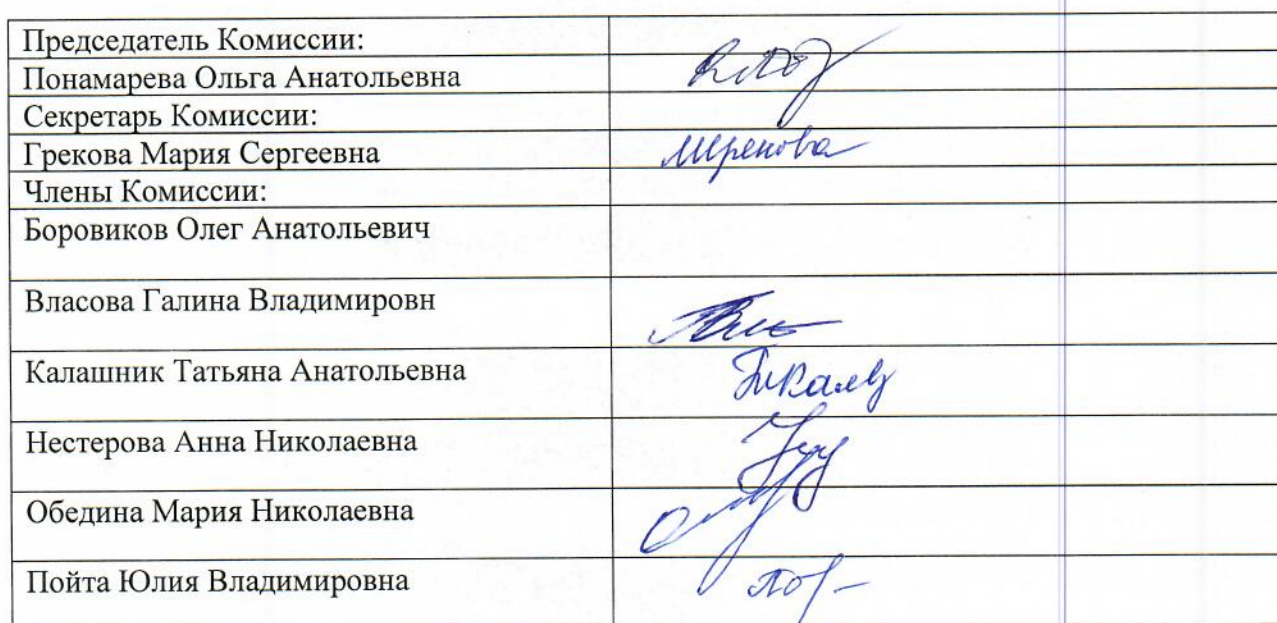 Председатель Комиссии:
Понамарева Ольга Анатольевна
Секретарь Комиссии:
Грекова Мария Сергеевна
Члены Комиссии:
Боровиков Олег Анатольевич
Власова Галина Владимировн
Калашник Татьяна Анатольевна
Нестерова Анна Николаевна
Обедина Мария Николаевна
Пойта Юлия Владимировна